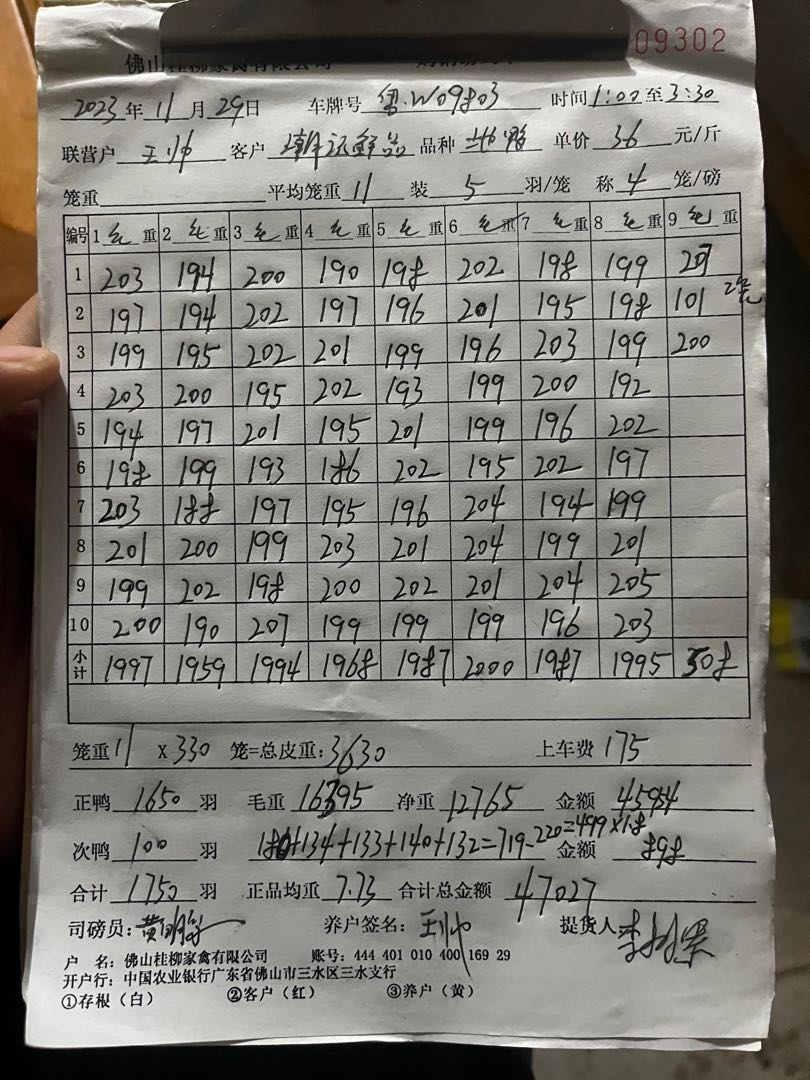 09302
佛山桂柳家禽有限公司
2023年11月29日 车牌号 粤.W09803 时间1:00至3:30
联营户 王帅 客户 品种 单价 36 元/斤
笼重 平均笼重 11 装 5 羽/笼 称 4 笼/磅
编号 1 毛 重 2 毛 重 3 毛 重 4 毛 重 5 毛 重 6 毛 重 7 毛 重 8 毛 重 9 毛 重
1 203 194 200 190 198 202 198 199 207
2 197 194 202 197 196 201 195 198 101 2笼
3 199 195 202 201 199 196 203 199 200
4 203 200 195 202 193 199 200 192
5 194 197 201 195 201 199 196 202
6 198 199 193 186 202 195 202 197
7 203 188 197 195 196 204 194 199
8 201 200 199 203 201 204 199 201
9 199 202 198 200 202 201 204 205
10 200 190 207 199 199 199 196 203
小计 1997 1959 1994 1968 1987 2000 1987 1995 508
笼重 11 x 330 笼=总皮重: 3630 上车费 175
正鸭 1650 羽 毛重 16395 净重 12765 金额 45954
次鸭 100 羽 180+134+133+140+132=719-220=499×18 金额 898
合计 1750 羽 正品均重 7.73 合计总金额 47027
司磅员: 养户签名: 王帅 提货人
户 名: 佛山桂柳家禽有限公司 账号: 444 401 010 400 169 29
开户行: 中国农业银行广东省佛山市三水区三水支行
①存根(白) ②客户(红) ③养户(黄)